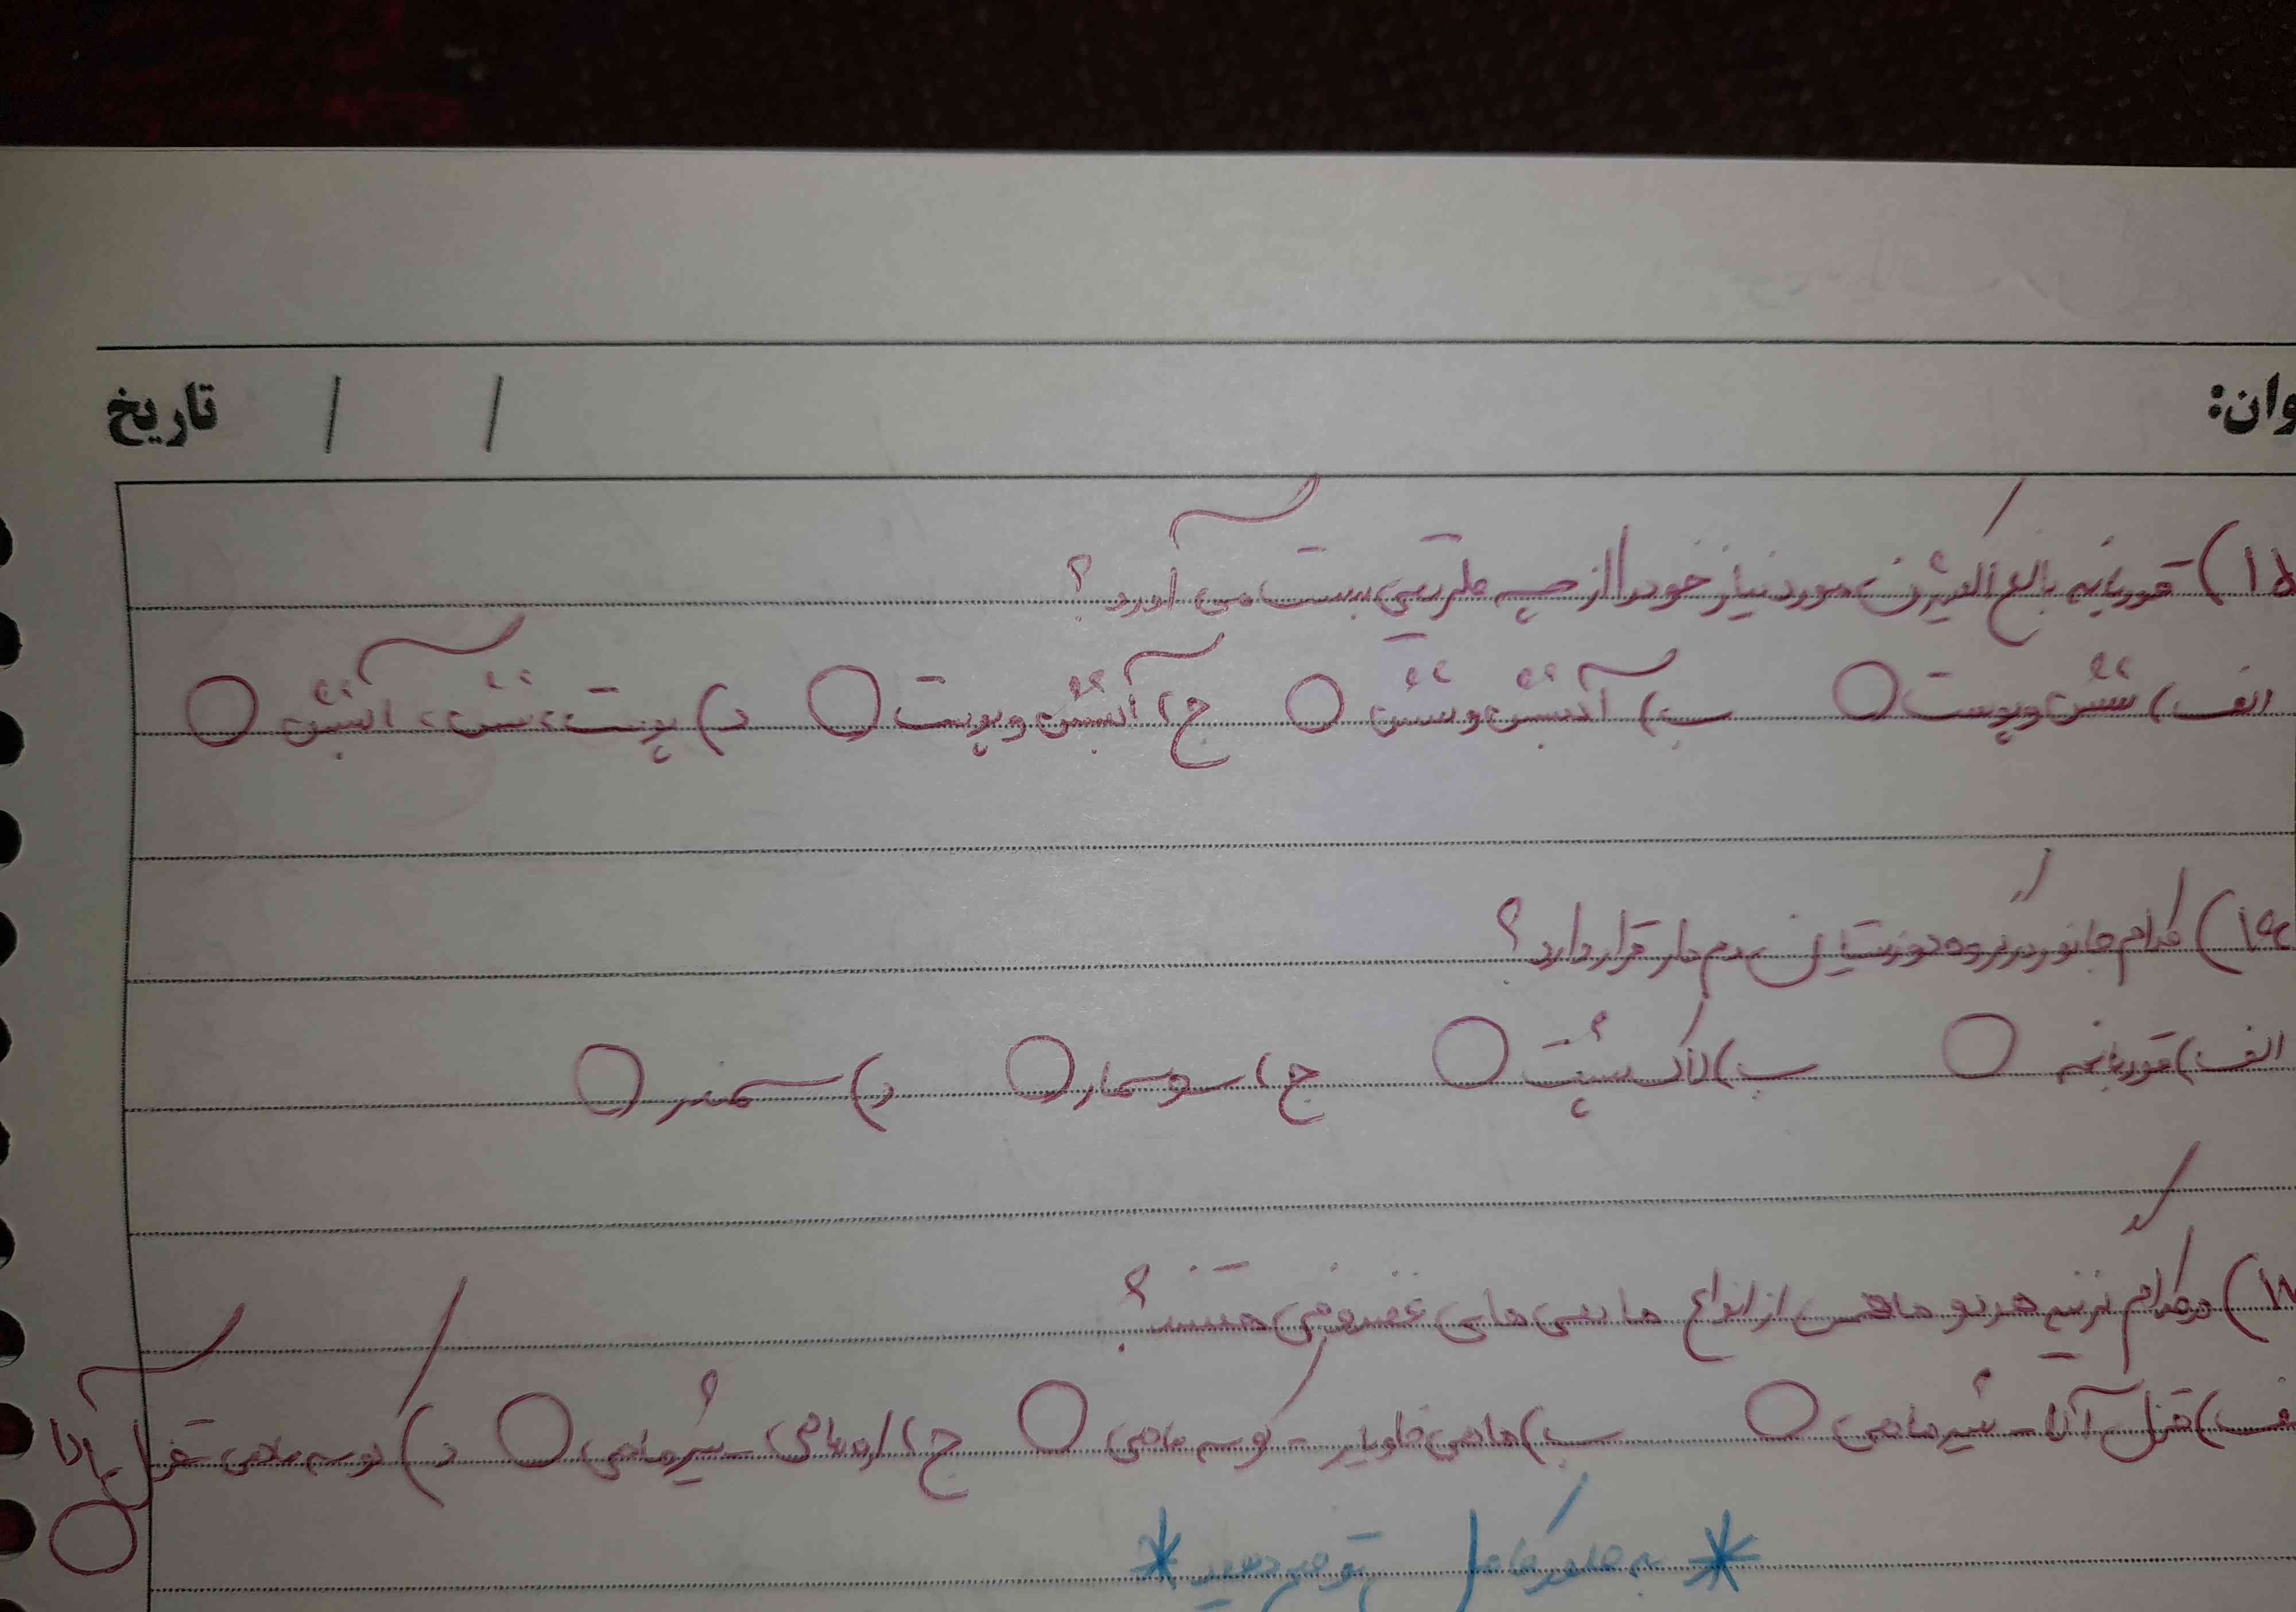 وان: / / تاریخ
۱۵) قورباغه بالغ اکسیژن مورد نیاز خود را از چه طریقی بدست می آورد؟
الف) شش و پوست ب) آبشش و شش ج) آبشش و پوست د) پوست، شش، آبشش
۱۶) کدام جانور در گروه دوزیستان دم دار قرار دارد؟
الف) قورباغه ب) لاک پشت ج) سوسمار د) سمندر
۱۷) در کدام گزینه هر دو ماهی از انواع ماهی های غضروفی هستند؟
الف) قزل آلا - شیر ماهی ب) ماهی خاویار - کوسه ماهی ج) اره ماهی - سپر ماهی د) کوسه ماهی قزل آلا
* به طور کامل توضیح دهید *